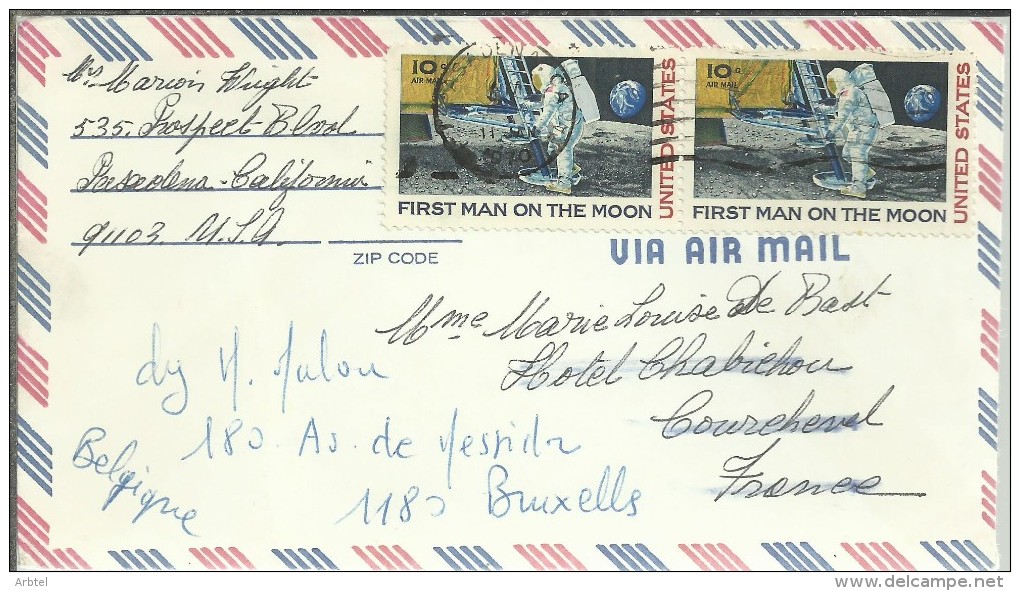 Mrs Marion Wright
535. Prospect Blvd
Pasadena - California
91103 U.S.A.
ZIP CODE
10c
AIR MAIL
UNITED STATES
FIRST MAN ON THE MOON
10c
AIR MAIL
UNITED STATES
FIRST MAN ON THE MOON
VIA AIR MAIL
Mme Marie Louise De Bast
Hotel Chabichou
Courchevel
France
180. Av. de Messidor
1180 Bruxelles
Belgique
Arbtel
delcampe.net